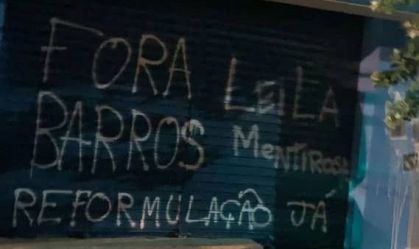 FORA LEILA
BARROS MENTIROSA
REFORMULAÇÃO JÁ